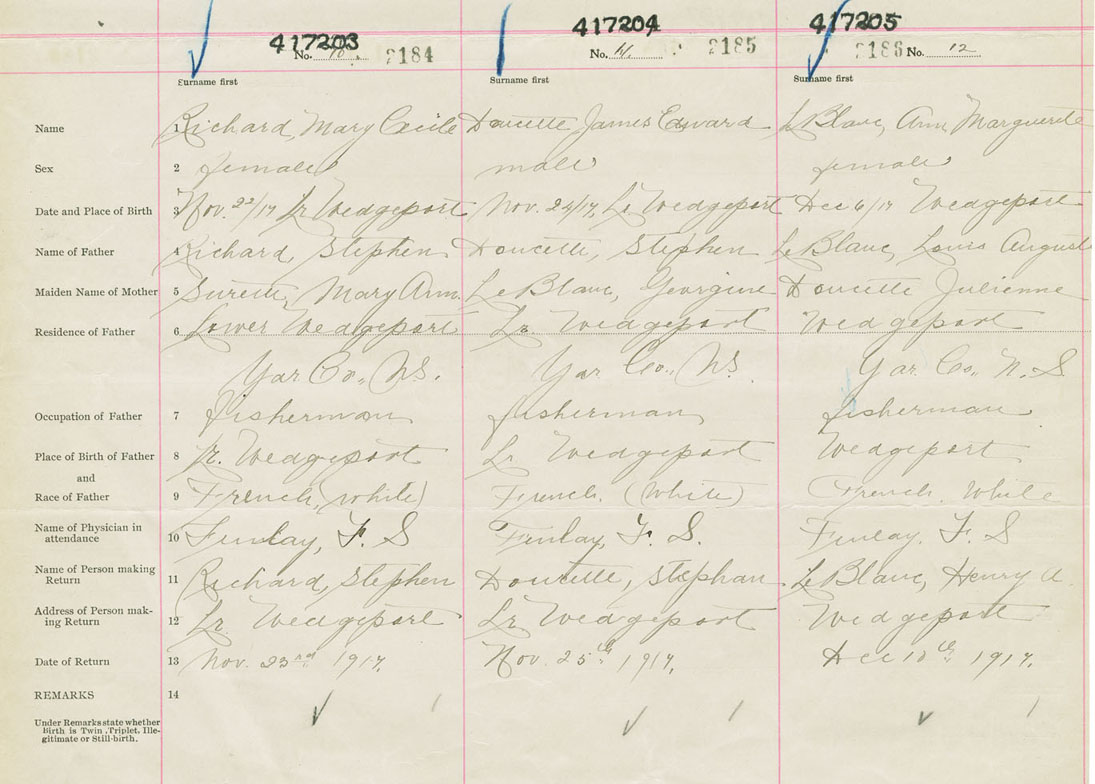 417203 417204 417205
No. 10. 2184 No. 11. 2185 2186 No. 12
Surname first Surname first Surname first
Name 1 Richard, Mary Cecile Doucette James Edward LeBlanc, Ann Marguerite
Sex 2 female male female
Date and Place of Birth 3 Nov. 22/17 Lr Wedgeport Nov. 24/17, Lr Wedgeport Dec 6/17 Wedgeport
Name of Father 4 Richard, Stephen Doucette, Stephen LeBlanc, Louis August
Maiden Name of Mother 5 Surette, Mary Ann. LeBlanc, Georgine Doucette Julienne
Residence of Father 6 Lower Wedgeport Lr. Wedgeport Wedgeport
Yar Co., N.S. Yar Co., N.S. Yar. Co., N. S.
Occupation of Father 7 fisherman fisherman fisherman
Place of Birth of Father 8 Lr. Wedgeport Lr Wedgeport Wedgeport
and
Race of Father 9 French, (white) French. (White) French. White
Name of Physician in
attendance 10 Finlay, F. S Finlay, F. S. Finlay, F. S
Name of Person making
Return 11 Richard, Stephen Doucette, Stephan LeBlanc, Henry A.
Address of Person mak-
ing Return 12 Lr. Wedgeport Lr Wedgeport Wedgeport
Date of Return 13 Nov. 23rd 1917. Nov. 25th 1917. Dec 10th 1917.
REMARKS 14
Under Remarks state whether
Birth is Twin, Triplet, Ille-
gitimate or Still-birth.